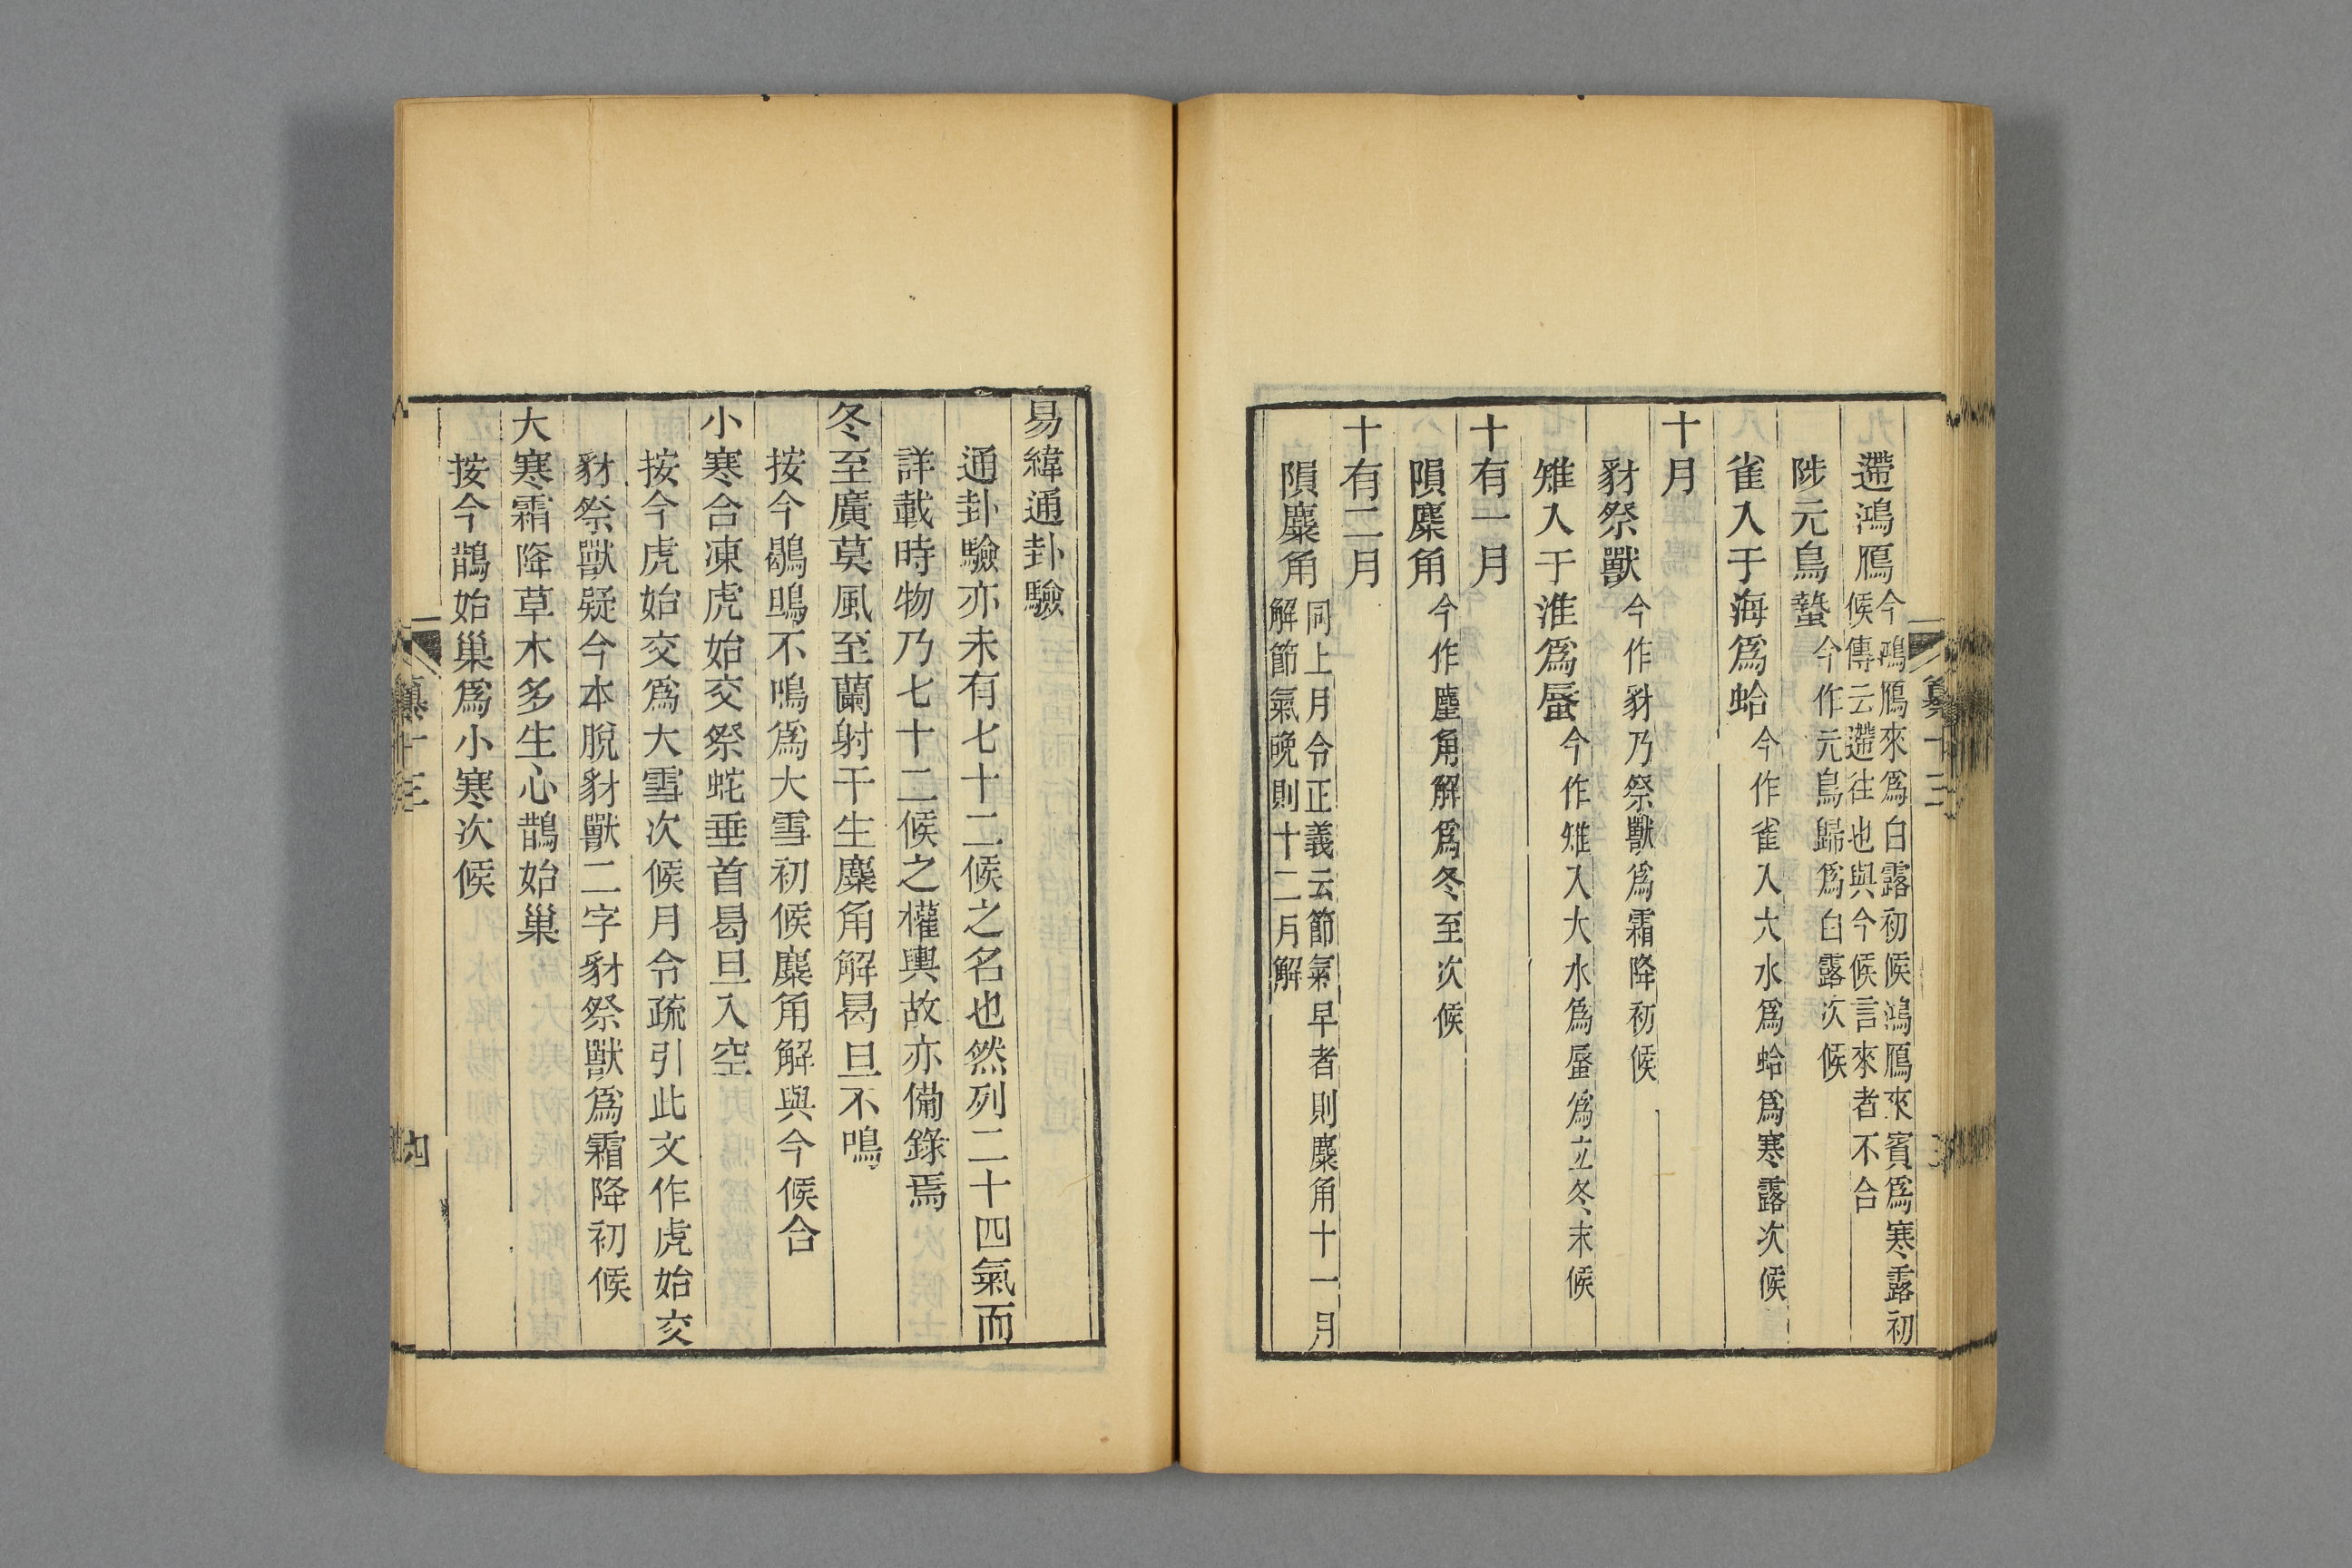 遰鴻鴈今鴻鴈來爲白露初候鴻鴈來賓爲寒露初
候傳云遰往也與今候言來者不合
陟元鳥蟄今作元鳥歸爲白露次候
雀入于海爲蛤今作雀入大水爲蛤爲寒露次候
十月
豺祭獸今作豺乃祭獸爲霜降初候
雉入于淮爲蜃今作雉入大水爲蜃爲立冬末候
十有一月
隕麋角今作麈角解爲冬至次候
十有二月
隕麋角同上月令正義云節氣早者則麋角十一月
解節氣晚則十二月解
易緯通卦驗
通卦驗亦未有七十二候之名也然列二十四氣而
詳載時物乃七十二候之權輿故亦備錄焉
冬至廣莫風至蘭射干生麋角解曷旦不鳴
按今鶡鴠不鳴爲大雪初候麋角解與今候合
小寒合凍虎始交祭蛇垂首曷旦入空
按今虎始交爲大雪次候月令疏引此文作虎始交
豺祭獸疑今本脫豺獸二字豺祭獸爲霜降初候
大寒霜降草木多生心鵲始巢
按今鵲始巢爲小寒次候
纂十三
四